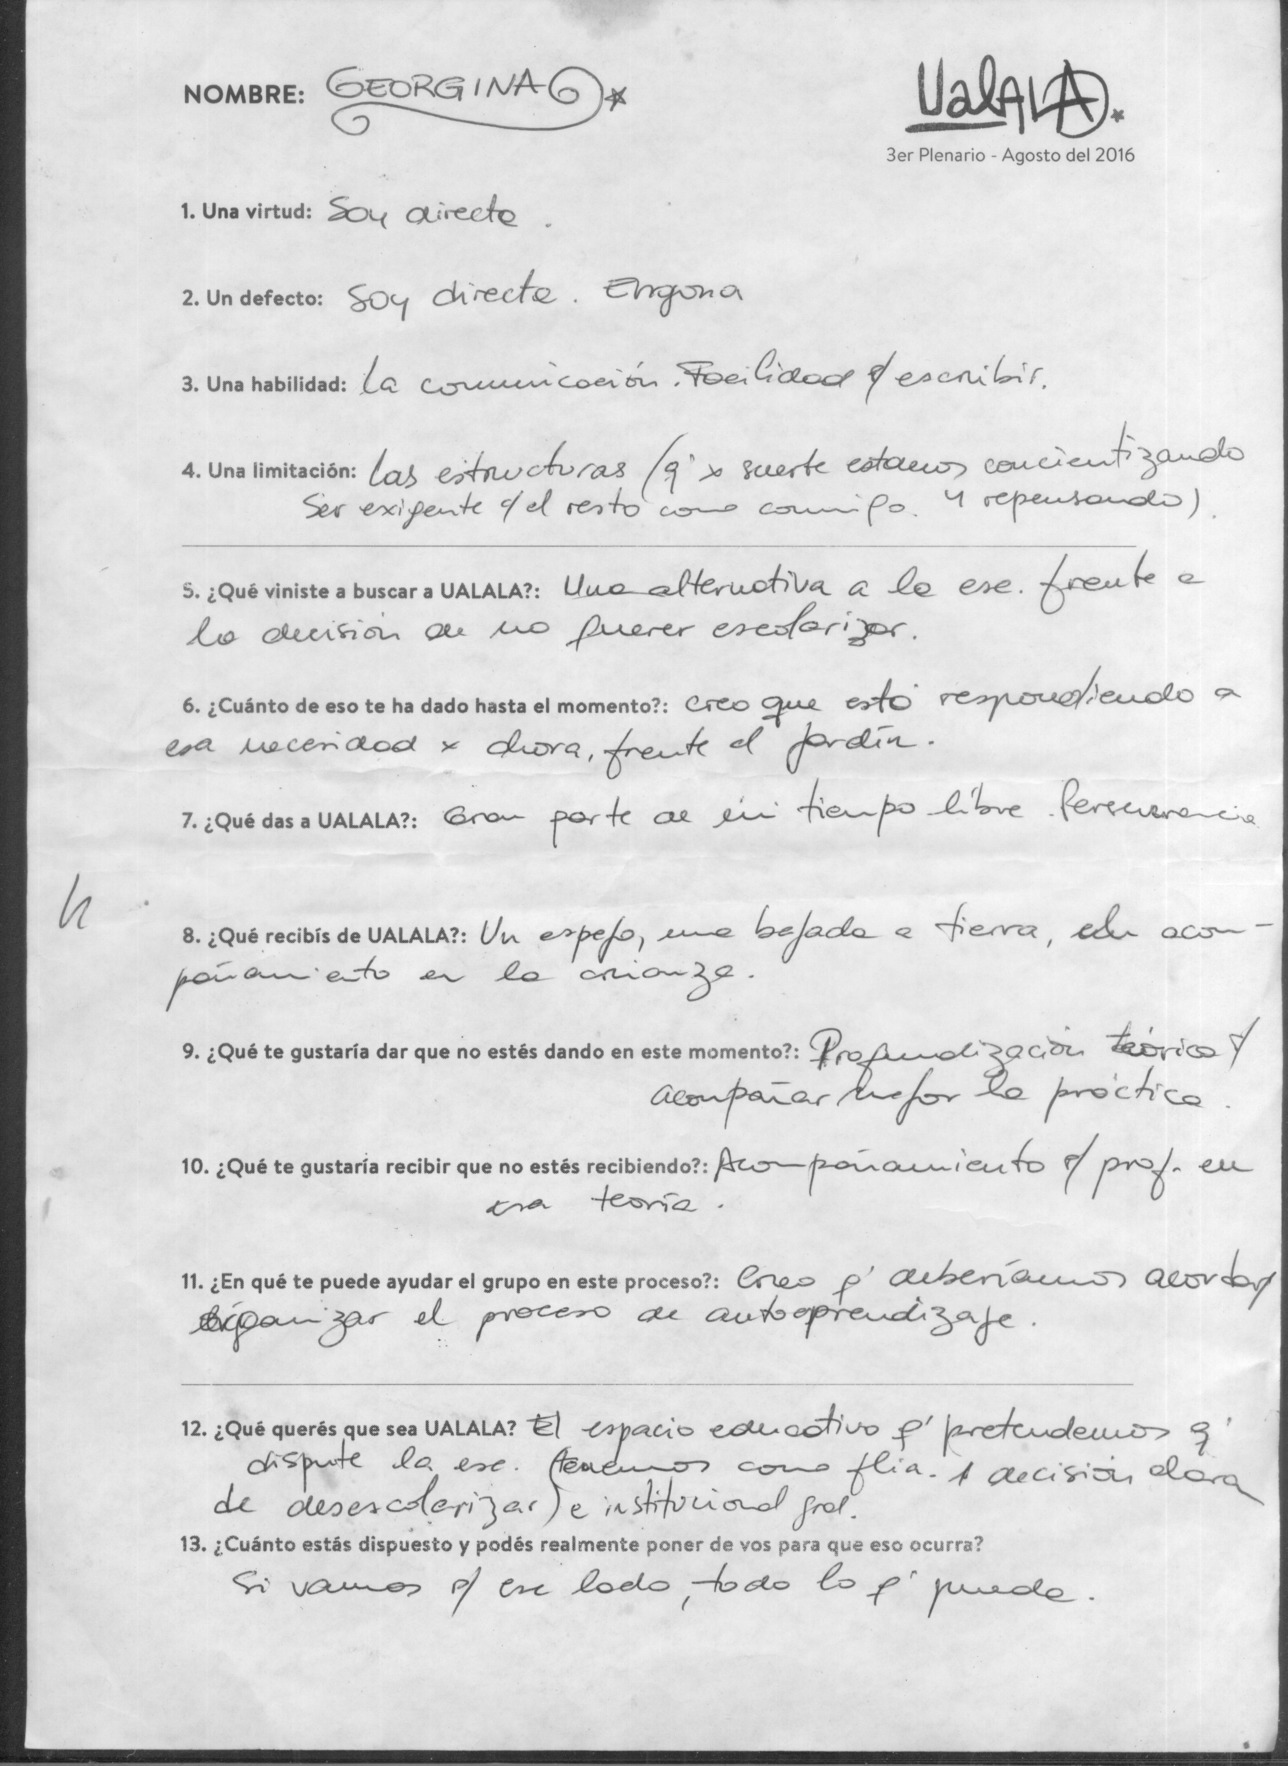 NOMBRE: GEORGINA
UalALA
3er Plenario - Agosto del 2016
1. Una virtud: Soy directa.
2. Un defecto: Soy directa.
3. Una habilidad: La comunicación. Facilidad p/ escribir.
4. Una limitación: Las estructuras (q' x suerte estamos concientizando
Ser exigente c/ el resto como conmigo. y repensando).
5. ¿Qué viniste a buscar a UALALA?: Una alternativa a la esc. frente a
la decisión de no querer escolarizar.
6. ¿Cuánto de eso te ha dado hasta el momento?: Creo que está respondiendo a
esa necesidad x ahora, frente al jardín.
7. ¿Qué das a UALALA?: Gran parte de mi tiempo libre. Perseverancia
8. ¿Qué recibís de UALALA?: Un espejo, una bajada a tierra, un acom-
pañamiento en la crianza.
9. ¿Qué te gustaría dar que no estés dando en este momento?: Profundización teórica p/
acompañar mejor la práctica.
10. ¿Qué te gustaría recibir que no estés recibiendo?: Acompañamiento p/ prof. en
esa teoría.
11. ¿En qué te puede ayudar el grupo en este proceso?: Creo q' deberíamos acordar y
organizar el proceso de autoaprendizaje.
12. ¿Qué querés que sea UALALA? El espacio educativo q' pretendemos q'
dispute la esc. (tenemos como flia. 1 decisión clara
de desescolarizar) e institucional gral.
13. ¿Cuánto estás dispuesto y podés realmente poner de vos para que eso ocurra?
Si vamos p/ ese lado, todo lo q' pueda.